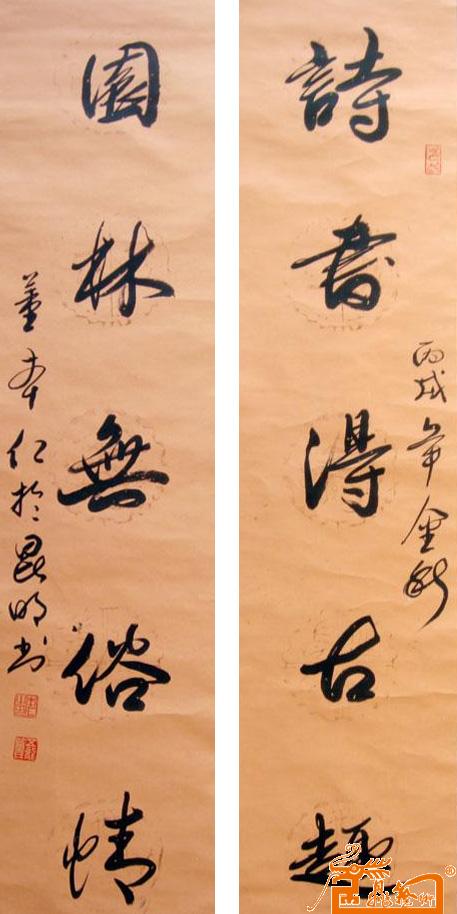 詩書得古趣
丙戌年金秋
園林無俗情
董本仁於昆明书